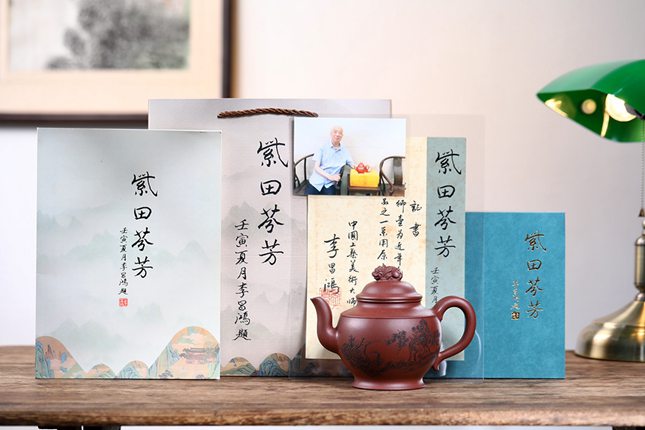 紫田芬芳
壬寅夏月李昌鴻題
紫田芬芳
壬寅夏月李昌鴻題
証書
師壺為近年
品之一系用原
中國工藝美術大師
李昌鴻
紫田芬芳
壬寅夏月
紫田芬芳